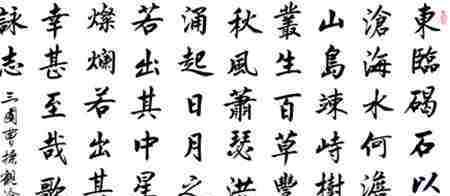 東臨碣石以
滄海水何澹
山島竦峙樹
叢生百草豐
秋風蕭瑟洪
涌起日月之
若出其中星
燦爛若出其
幸甚至哉歌
詠志
三國曹操觀滄